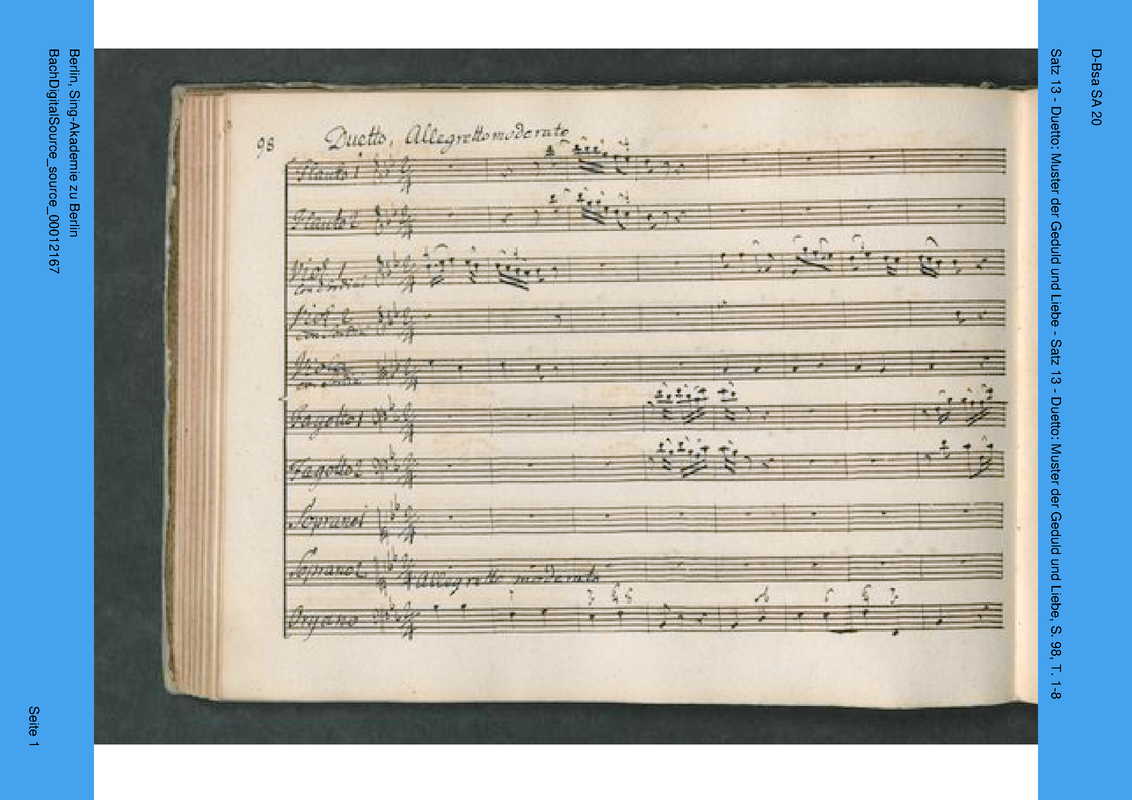 D-Bsa SA 20
Satz 13 - Duetto: Muster der Geduld und Liebe - Satz 13 - Duetto: Muster der Geduld und Liebe, S. 98, T. 1-8
98
Duetto, Allegretto moderato
Flauto 1
Flauto 2
Viol. 1
con Sordini
Viol 2
con Sordini
Viola
Fagotto 1
Fagotto 2
Soprano 1
Soprano 2
Allegretto moderato
Organo
Berlin, Sing-Akademie zu Berlin
BachDigitalSource_source_00012167
Seite 1